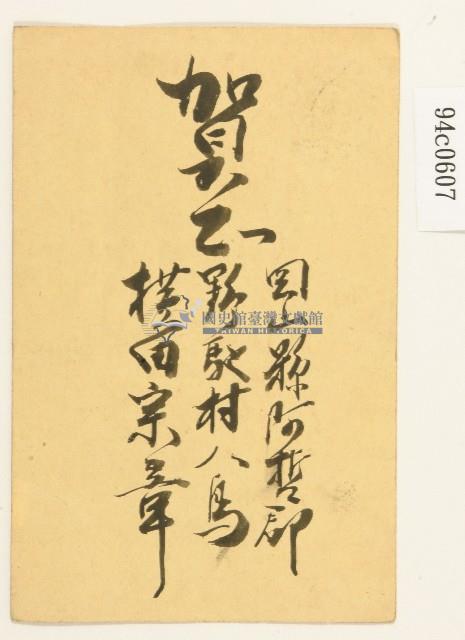 賀正
岡山縣阿哲郡
野馳村八鳥
横田宗章
國史館臺灣文獻館
TAIWAN HISTORICA
94c0607